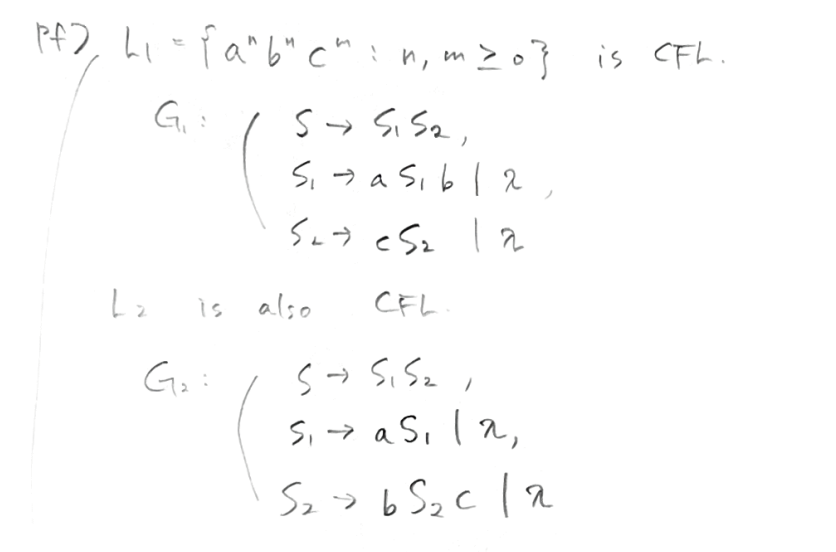 pf) L₁ = {aⁿbⁿcᵐ : n, m ≥ 0} is CFL.
G₁: S → S₁S₂,
S₁ → aS₁b | λ,
S₂ → cS₂ | λ
L₂ is also CFL.
G₂: S → S₁S₂,
S₁ → aS₁ | λ,
S₂ → bS₂c | λ